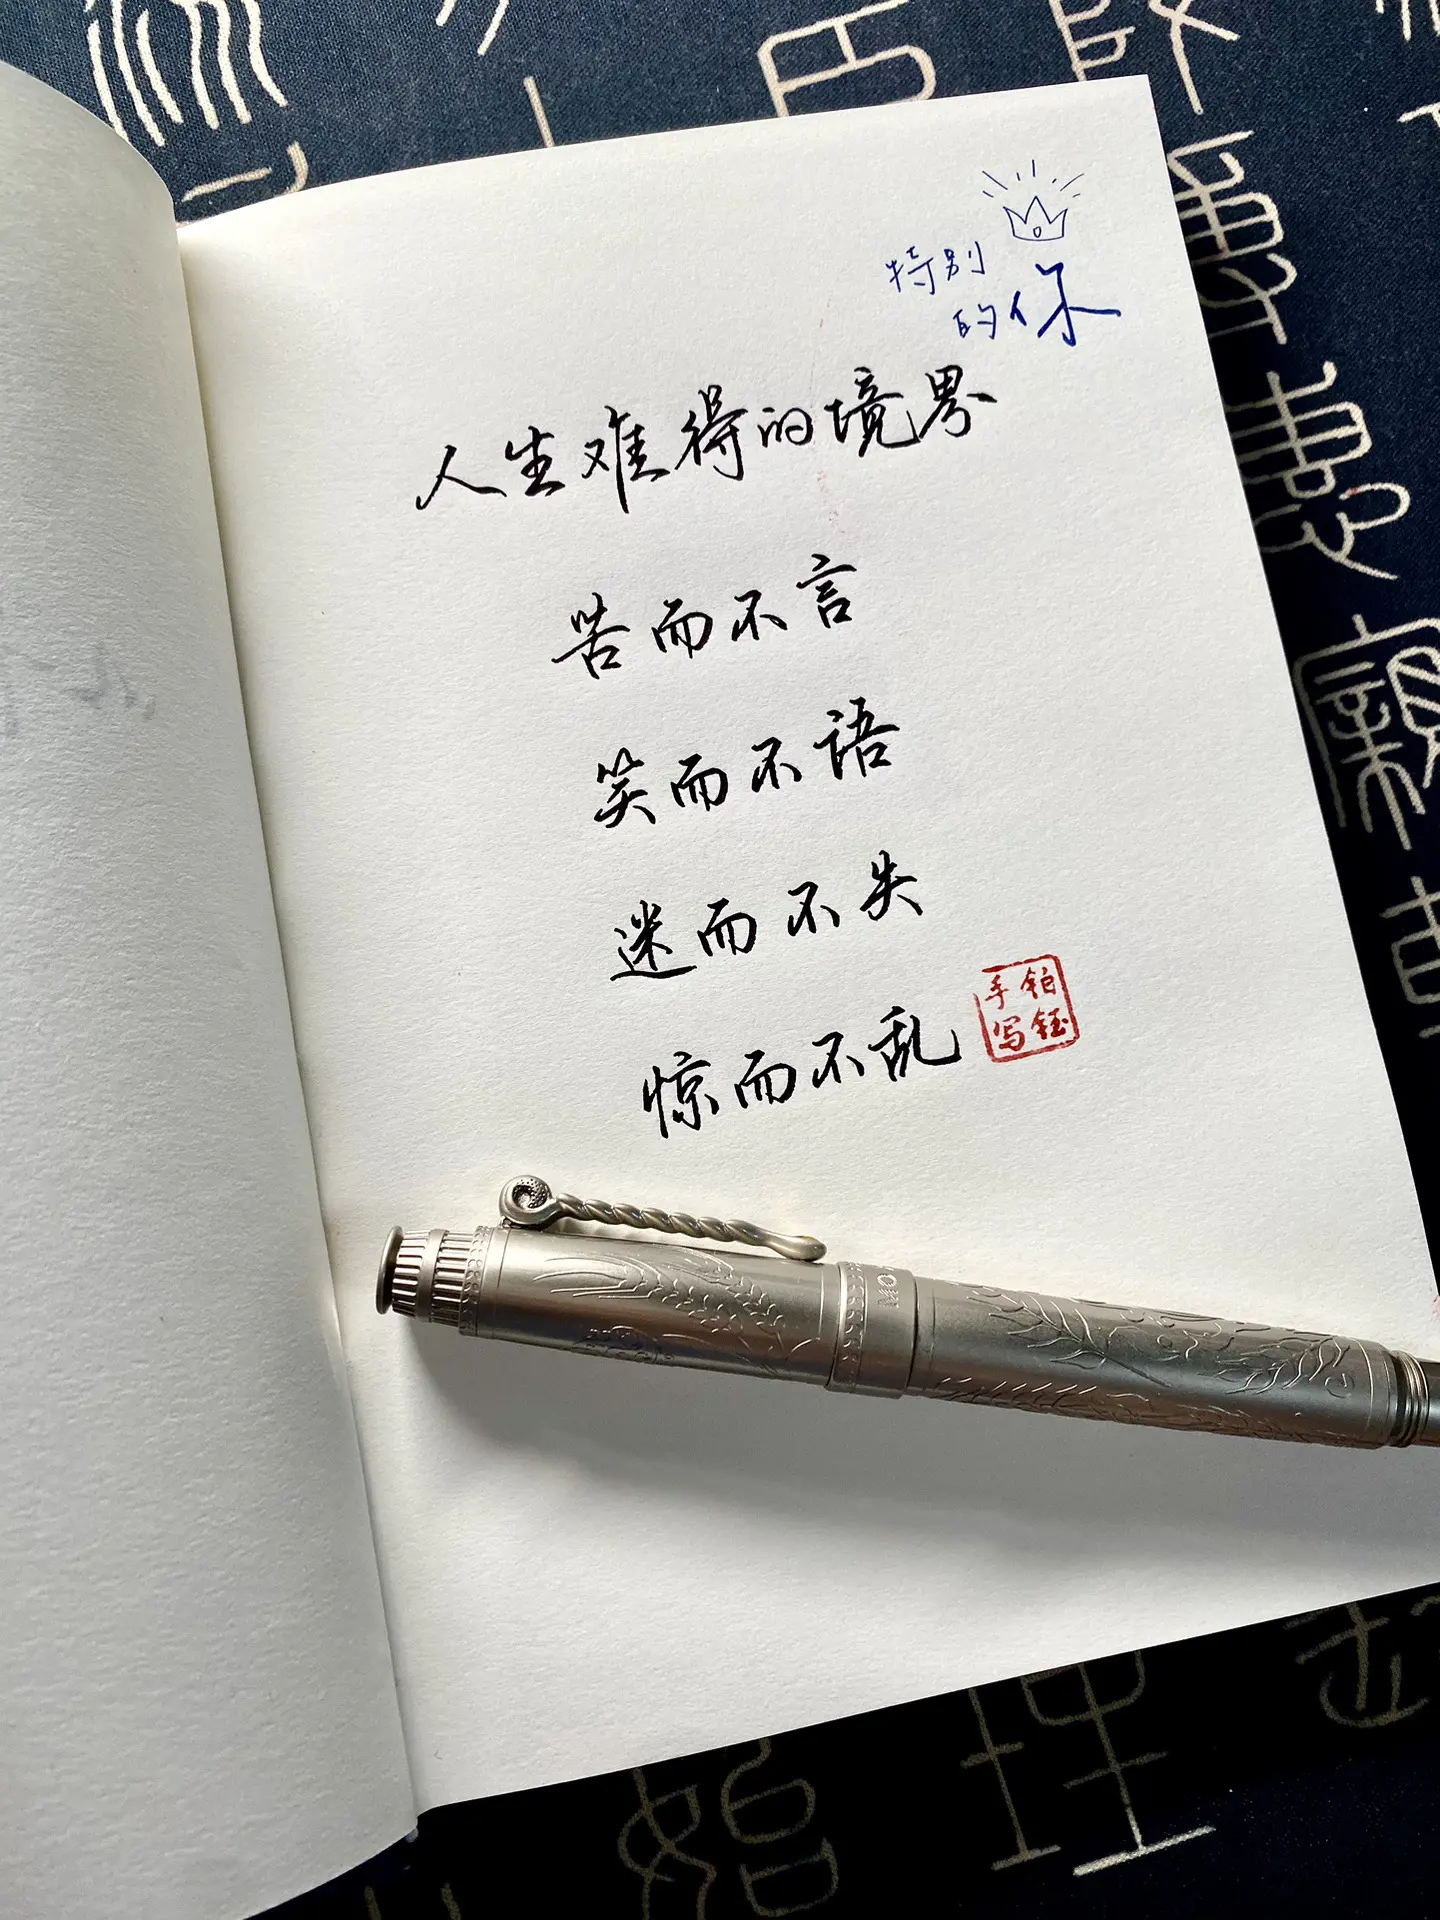 特别
的你
人生难得的境界
苦而不言
笑而不语
迷而不失
惊而不乱
铂钰
手写
MO